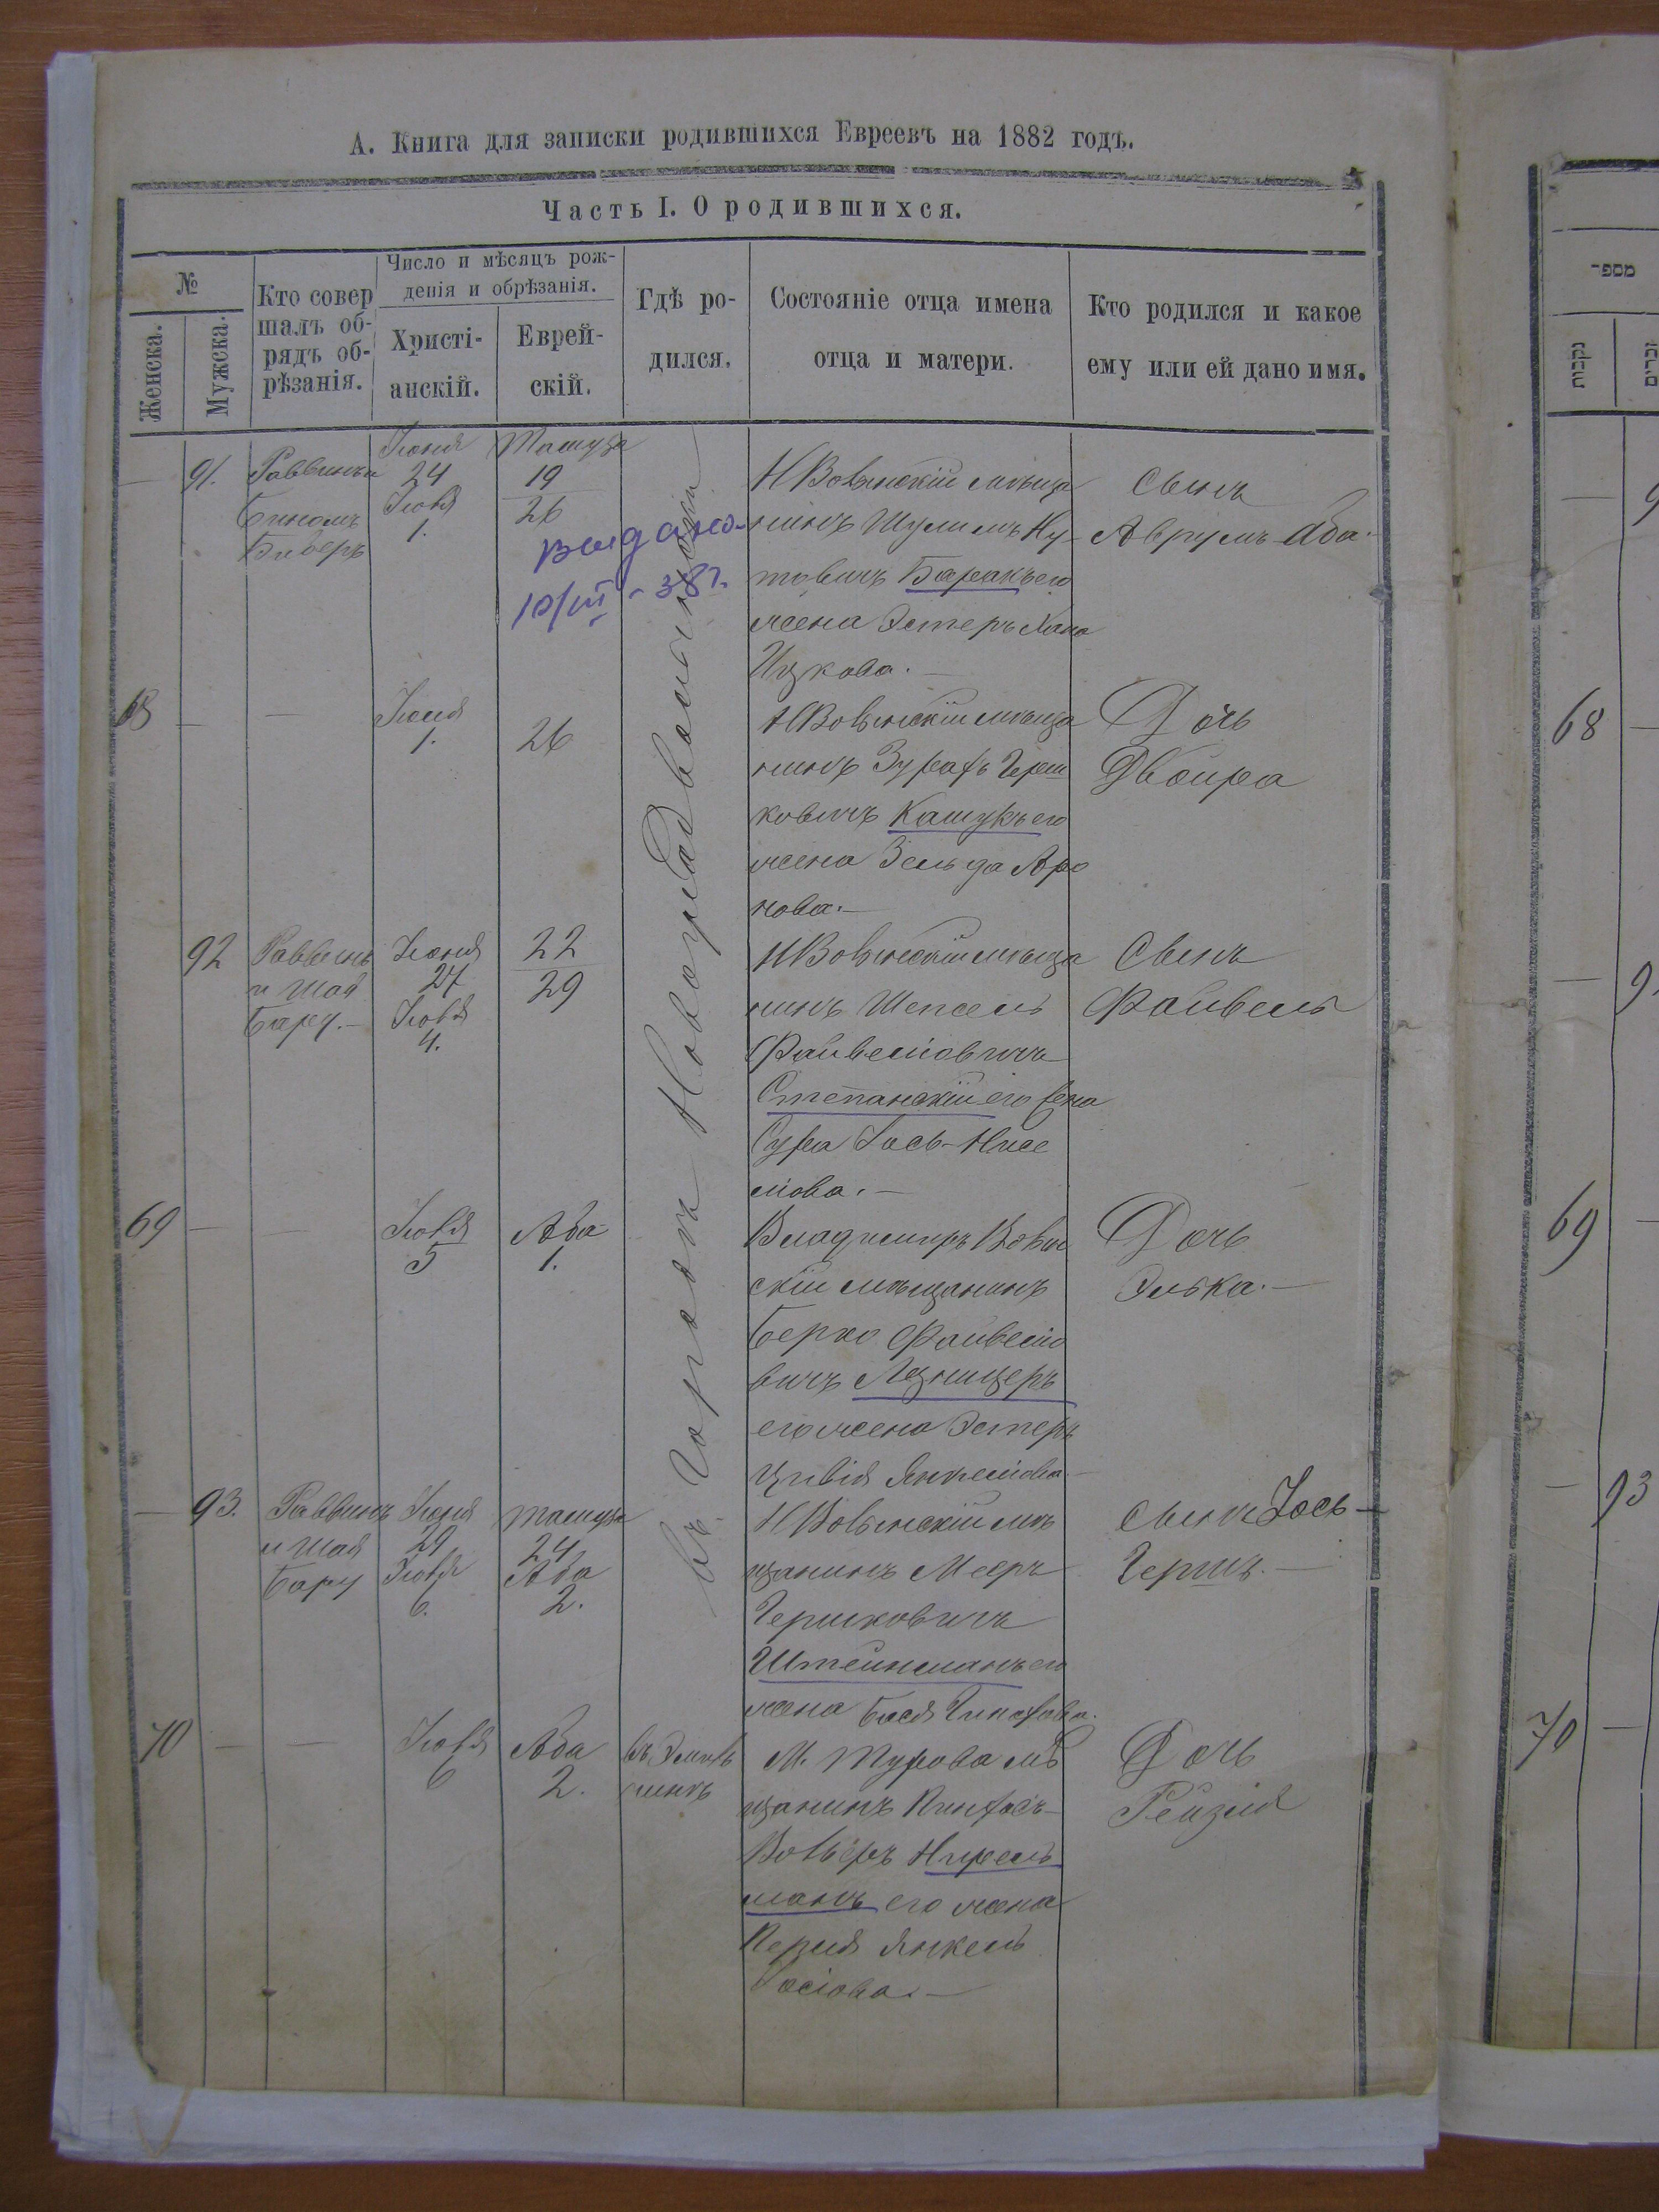 А. Книга для записки родившихся Евреевъ на 1882 годъ.
Часть I. О родившихся.
№
Женска.
Мужска.
Кто совер
шалъ об-
рядъ об-
рѣзанія.
Число и мѣсяцъ рож-
денія и обрѣзанія.
Христі-
анскій.
Еврей-
скій.
Гдѣ ро-
дился.
Состояніе отца имена
отца и матери.
Кто родился и какое
ему или ей дано имя.
въ Городѣ Новоградволынскѣ
91.
Раввинъ
Биберъ
Іюня
24
Іюля
1.
Тамуза
19
26
выдано
10/III - 38 г.
НВолынскій мѣща
нинъ Шулимъ Ну
товичъ Баракъ его
жена Эстеръ Хана
Ицкова.
Сынъ
Аврумъ Аба.
68
Іюля
1.
26
НВолынскій мѣща
нинъ Герш
ковичъ Кашукъ его
жена Зельда Аро
нова.
Дочь
Двойра
92
Раввинъ
и Шая
Бару.
Іюня
27
Іюля
4.
22
29
НВолынскій мѣща
нинъ Шепсель
Файвелювичъ
Степанскій его жена
Сура Іось-Нисе
лова.
Сынъ
Файвель
69
Іюля
5
Аба
1.
Владимиръ Волын
скій мѣщанинъ
Берко Файвелю
вичъ
его жена Эстеръ
Цивія Янкелева.
Дочь
Элька.
93.
Раввинъ
и Шая
Бару
Іюня
29
Іюля
6.
Тамуза
24
Аба
2.
НВолынскій мѣ
щанинъ Мееръ
Гершковичъ
Штейнманъ его
жена Бася
Сынъ Іось-
Гершъ.
70
Іюля
6
Аба
2.
М. Турова мѣ
щанинъ Пинхасъ
Вольфъ Нирель
манъ его жена
Перля Янкель
Іослова.
Дочь
Рейзля
מספר
נקבות
זכרים
68
69
93
70